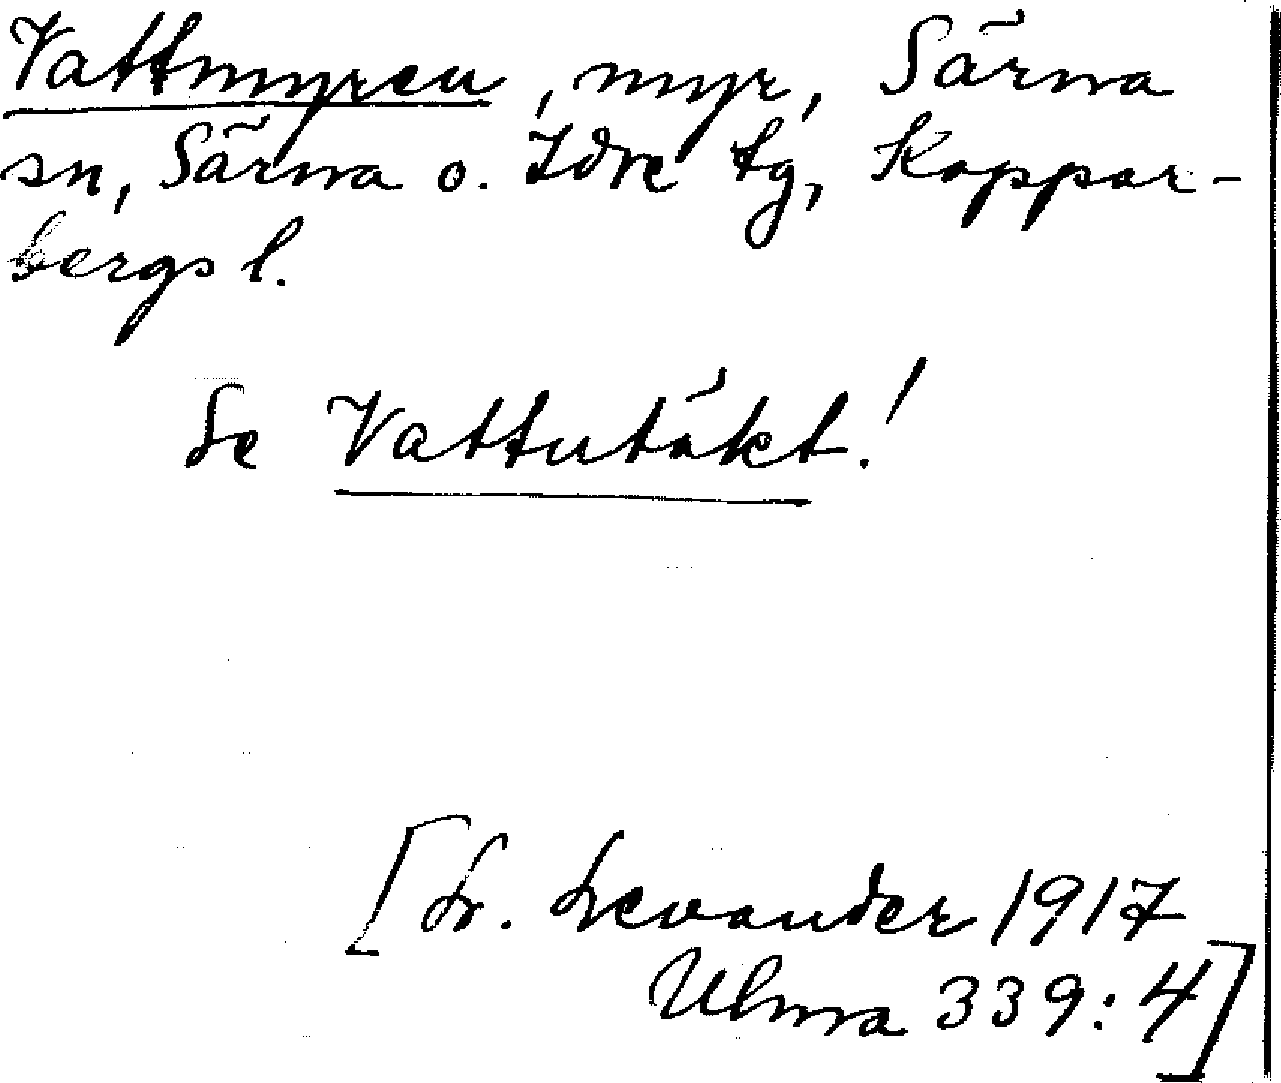 Vattmyren, myr, Särna
sn, Särna o. Idre tg, Koppar-
bergs l.
Se Vattutäkt!
[L. Levander 1917
Ulma 339:4]